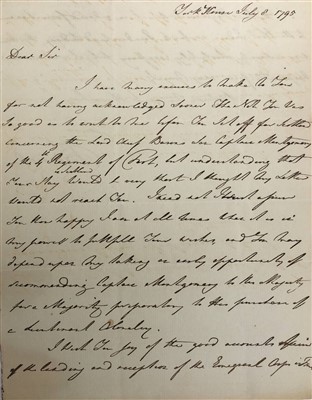 York House July 8. 1795
Dear Sir
I have many excuses to make to You
for not having acknowledged sooner The Note You was
so good as to write to me before You set off for Scotland
concerning the Lord Chief Baron's Son Captain Montgomery
of the 4th Regiment of Foot, but understanding that
Your Stay in Scotland would be very short I thought my Letter
would not reach You. I need not I trust assure
You how happy I am at all times when it is in
my power to fullfill Your wishes, and You may
depend upon my taking an early opportunity of
recommending Captain Montgomery to His Majesty
for a Majority preparatory to the purchase of
a Lieutenant Colonelcy.
I wish You joy of the good accounts
of the landing and reception of the Emigrant Corps in